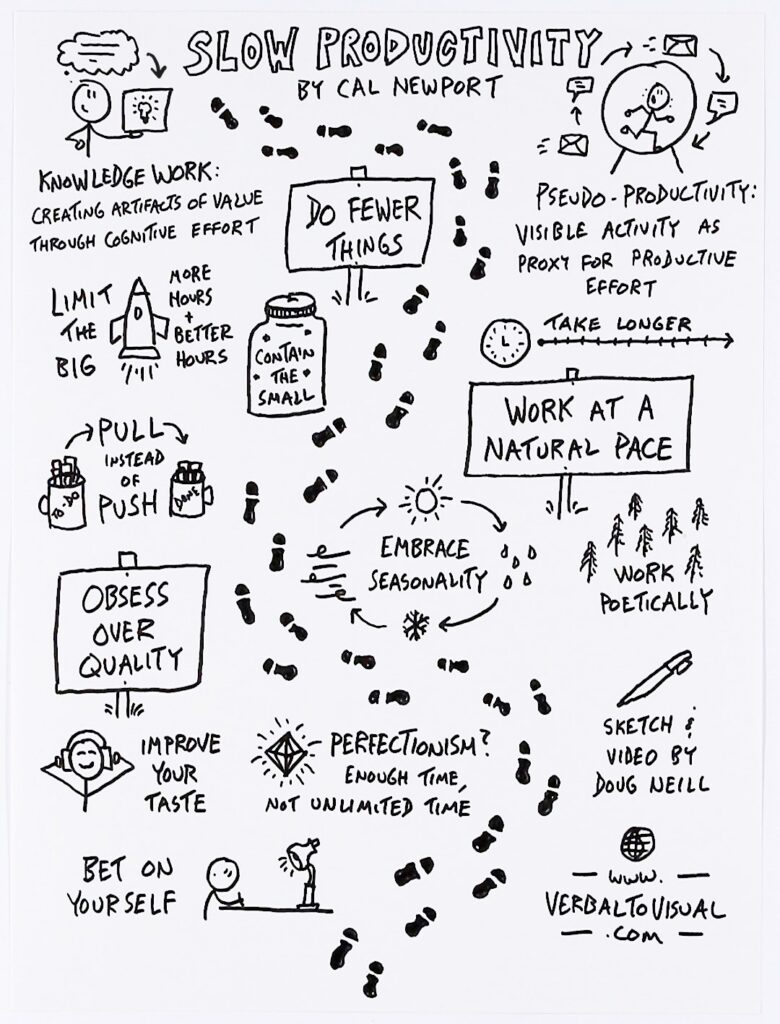 SLOW PRODUCTIVITY
BY CAL NEWPORT
KNOWLEDGE WORK:
CREATING ARTIFACTS OF VALUE
THROUGH COGNITIVE EFFORT
PSEUDO-PRODUCTIVITY:
VISIBLE ACTIVITY AS
PROXY FOR PRODUCTIVE
EFFORT
DO FEWER
THINGS
LIMIT
THE
BIG
MORE
HOURS
+
BETTER
HOURS
CONTAIN
THE
SMALL
TAKE LONGER
WORK AT A
NATURAL PACE
PULL
INSTEAD
OF
PUSH
TO-DO
DONE
EMBRACE
SEASONALITY
WORK
POETICALLY
OBSESS
OVER
QUALITY
IMPROVE
YOUR
TASTE
PERFECTIONISM?
ENOUGH TIME,
NOT UNLIMITED TIME
SKETCH &
VIDEO BY
DOUG NEILL
BET ON
YOURSELF
— WWW. —
VERBALTOVISUAL
— .COM —